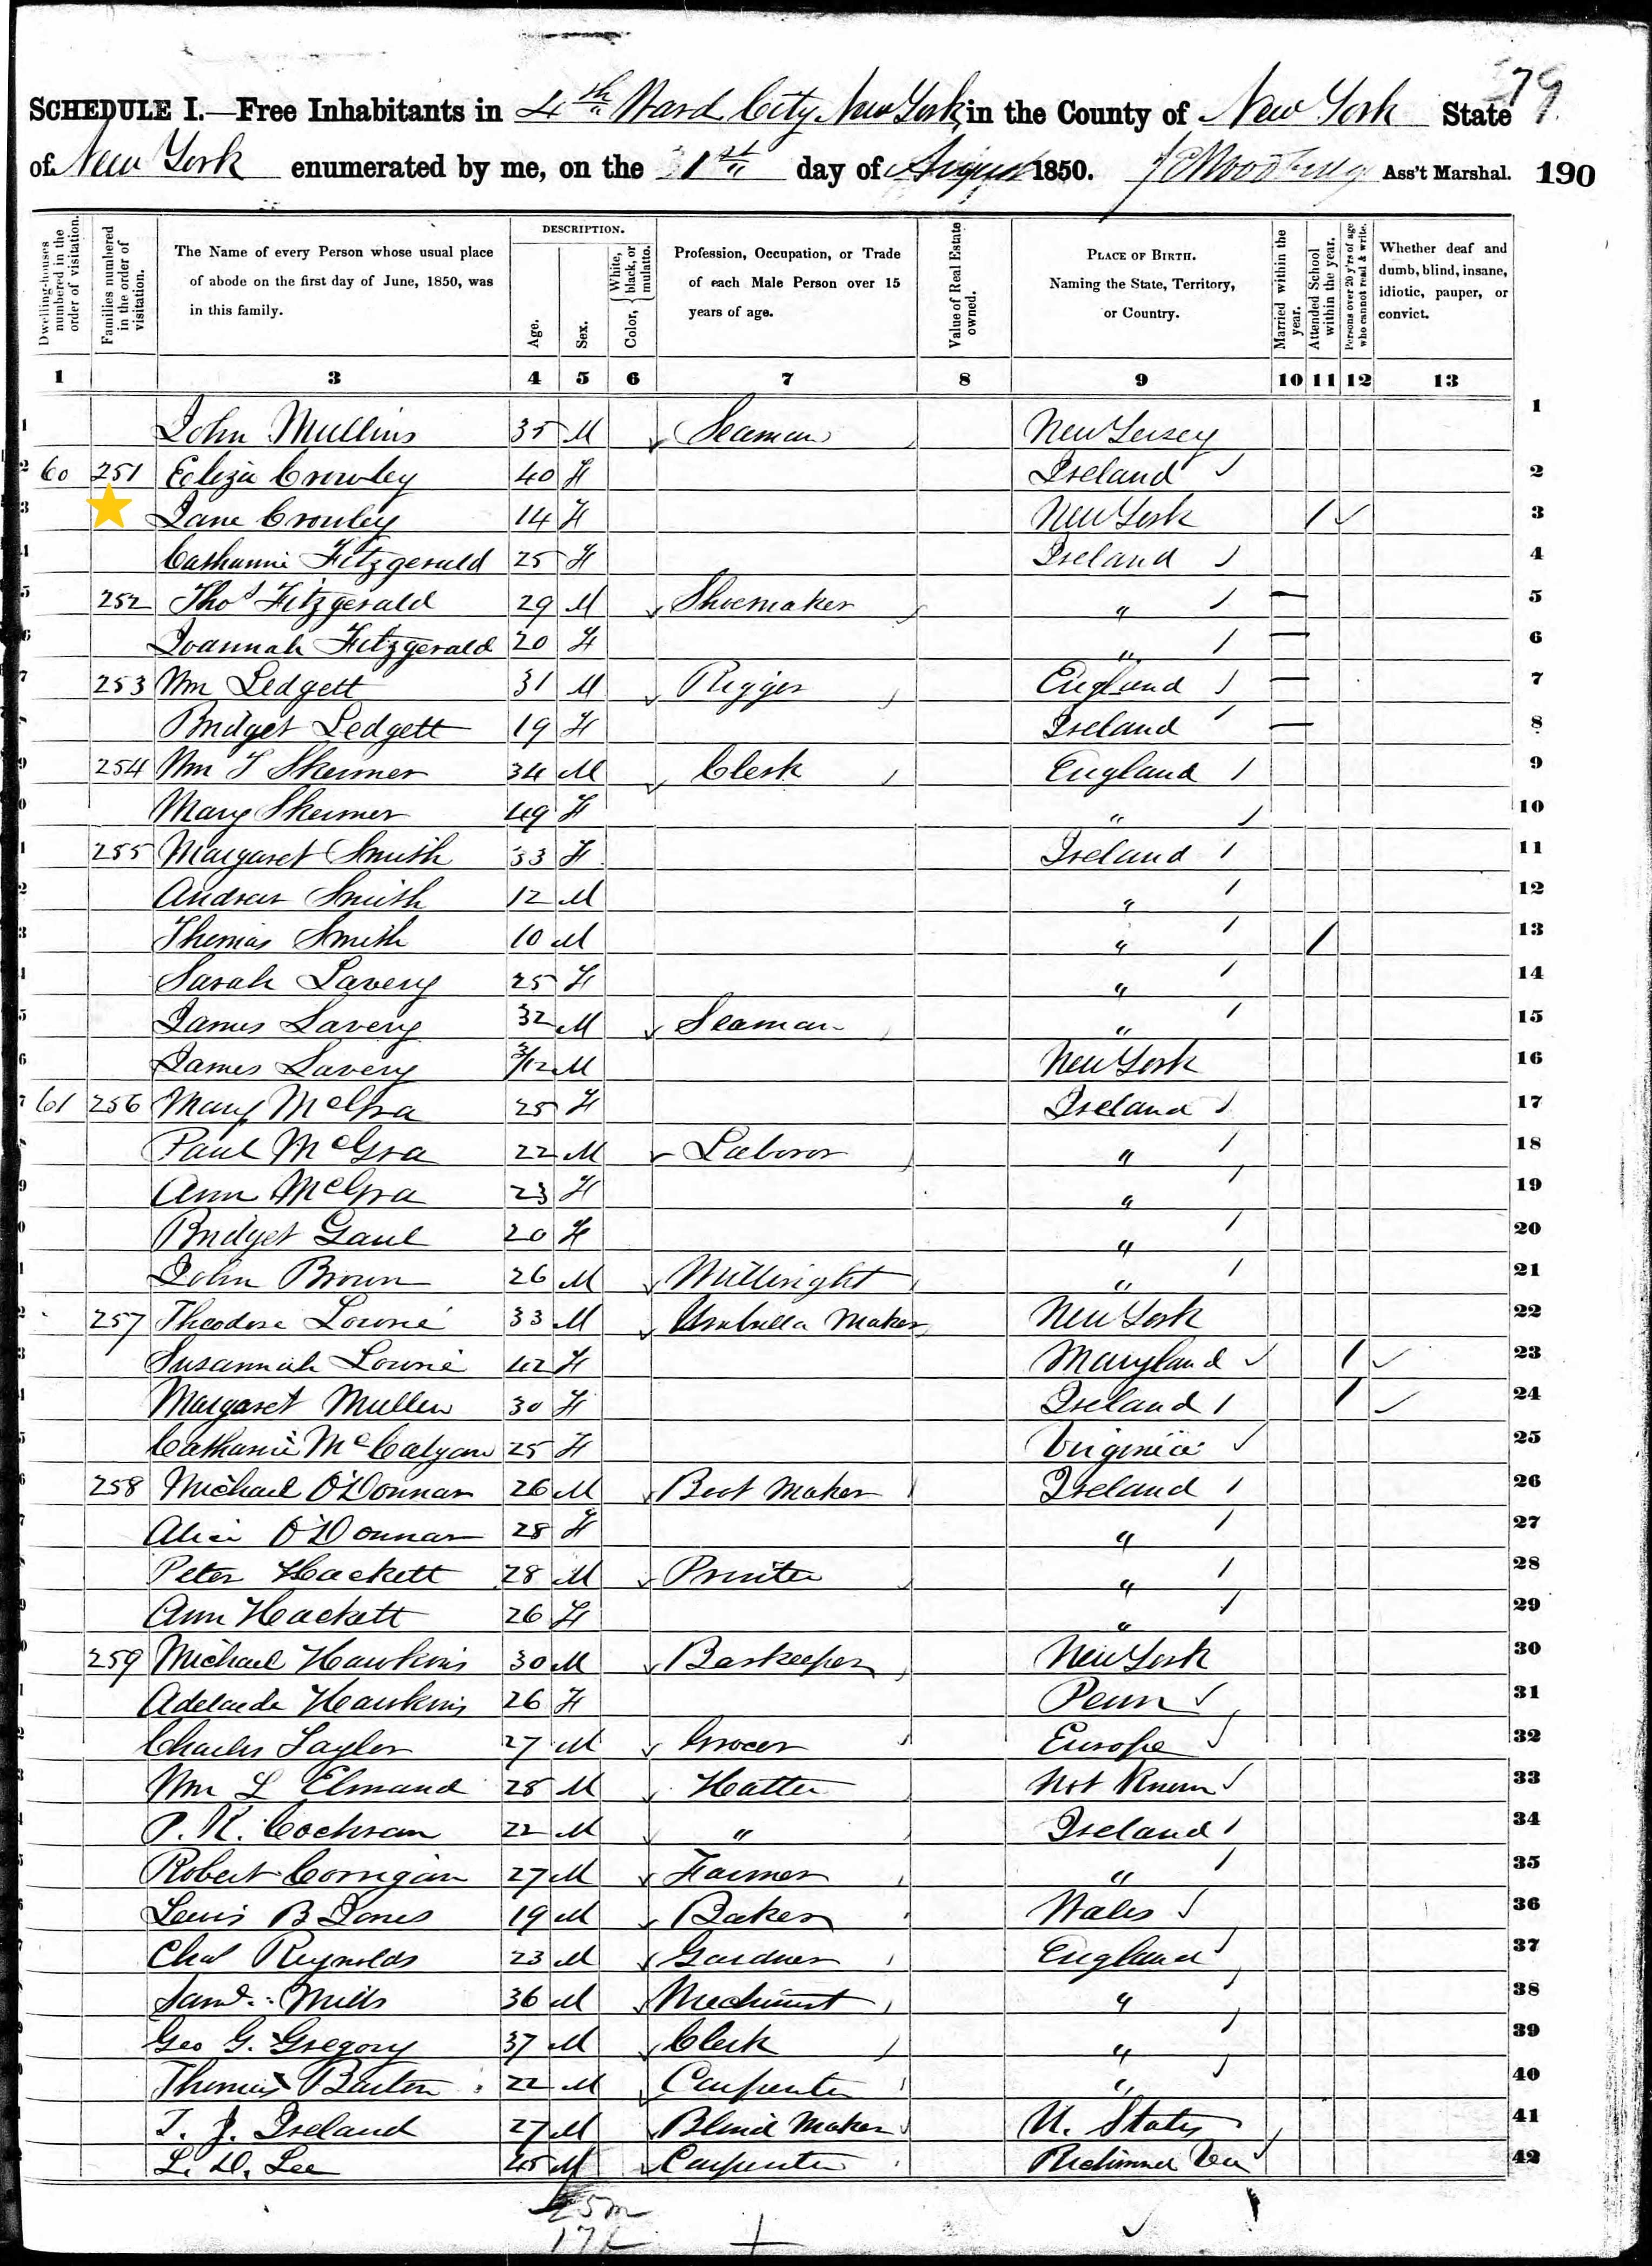 79
SCHEDULE I.—Free Inhabitants in 4th Ward City New York in the County of New York State
of New York enumerated by me, on the 31st day of August 1850. Ass't Marshal. 190
Dwelling-houses numbered in the order of visitation.
Families numbered in the order of visitation.
The Name of every Person whose usual place of abode on the first day of June, 1850, was in this family.
DESCRIPTION.
Age.
Sex.
Color, { White, black, or mulatto.
Profession, Occupation, or Trade of each Male Person over 15 years of age.
Value of Real Estate owned.
PLACE OF BIRTH. Naming the State, Territory, or Country.
Married within the year.
Attended School within the year.
Persons over 20 y'rs of age who cannot read & write.
Whether deaf and dumb, blind, insane, idiotic, pauper, or convict.
1 3 4 5 6 7 8 9 10 11 12 13
John Mullins 35 M Seaman New Jersey 1
60 251 Eliza Crowley 40 F Ireland 2
Jane Crowley 14 F New York 1 3
Catharine Fitzgerald 25 F Ireland 4
252 Thos Fitzgerald 29 M Shoemaker " — 5
Joannah Fitzgerald 20 F " — 6
253 Wm Ledgett 31 M Rigger England — 7
Bridget Ledgett 19 F Ireland — 8
254 Wm T Skermer 34 M Clerk England 9
Mary Skermer 49 F " 10
255 Margaret Smith 33 F Ireland 11
Andrew Smith 12 M " 12
Thomas Smith 10 M " 1 13
Sarah Lavery 25 F " 14
James Lavery 32 M Seaman " 15
James Lavery 3/12 M New York 16
61 256 Mary McGra 25 F Ireland 17
Paul McGra 22 M Laboror " 18
Ann McGra 23 F " 19
Bridget Gaul 20 F " 20
John Brown 26 M Millwright " 21
257 Theodore Lowrie 33 M Umbrella Maker New York 22
Susannah Lowrie 42 F Maryland 1 23
Margaret Mullen 30 F Ireland 1 24
Catharine 25 F Virginia 25
258 Michael O'Donnar 26 M Boot Maker Ireland 26
Alice O'Donnar 28 F " 27
Peter Hackett 28 M Printer " 28
Ann Hackett 26 F " 29
259 Michael Hawkins 30 M Barkeeper New York 30
Adelaide Hawkins 26 F Penn 31
Charles Taylor 27 M Grocer Europe 32
Wm L Elmand 28 M Hatter Not Known 33
P. K. Cochran 22 M " Ireland 34
Robert Corrigan 27 M Farmer " 35
Lewis B Jones 19 M Baker Wales 36
Chas Reynolds 23 M Gardner England 37
Saml Mills 36 M " 38
Geo G. Gregory 37 M Clerk " 39
Thomas Barton 22 M Carpenter " 40
T. J. Ireland 27 M Blind Maker U. States 41
L. D. Lee 45 M Carpenter 42
25 m
17 f